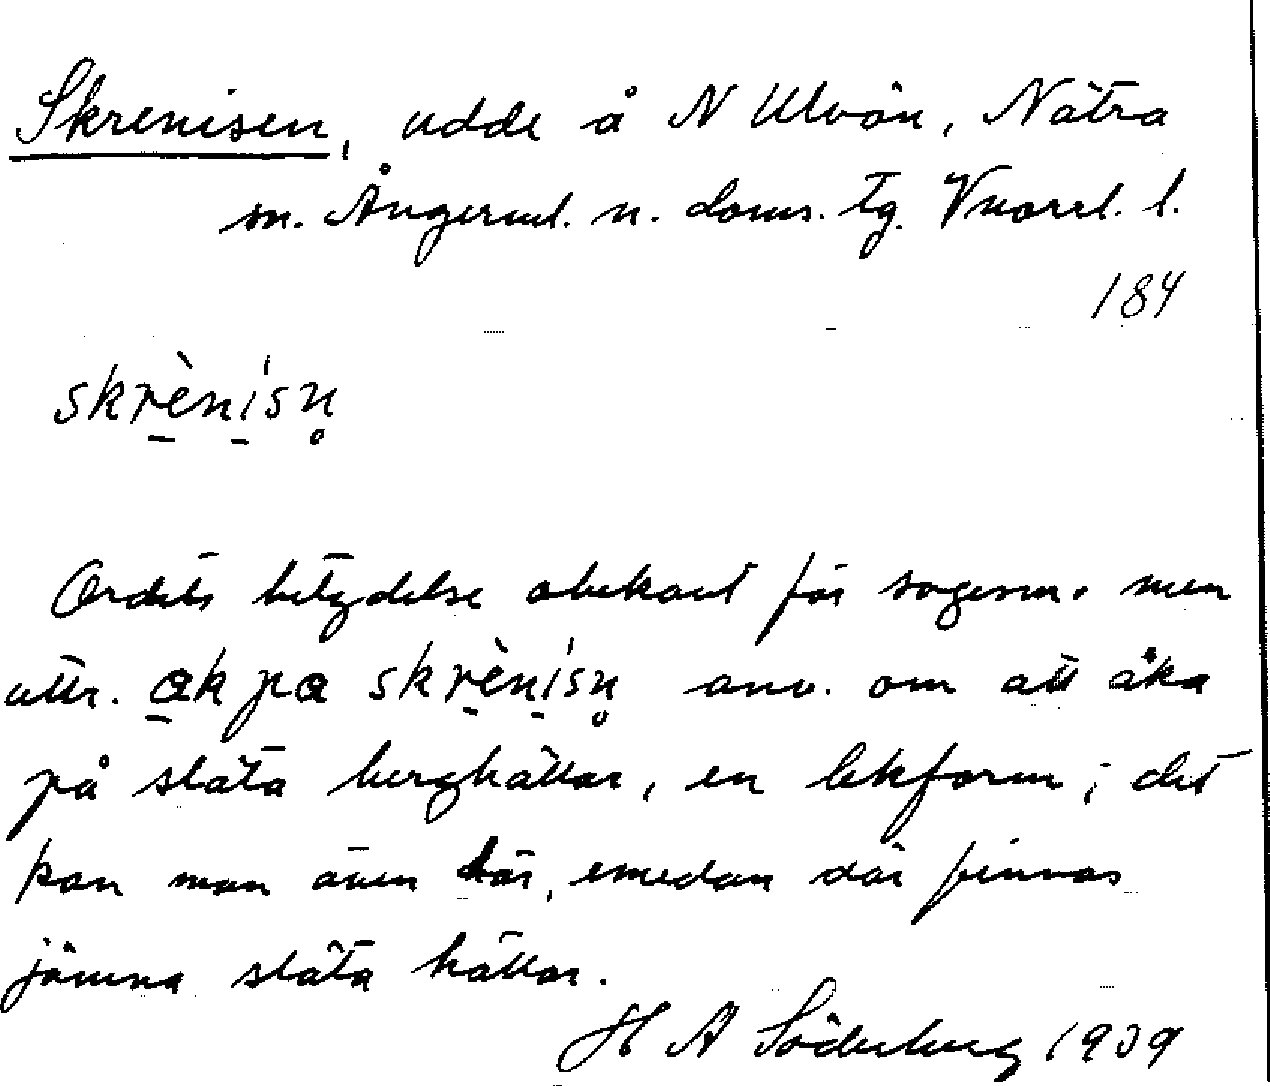 Skrenisen, udde å N Ulvön, Nätra
sn. Ångerml. n. doms. tg. Västernorrl. l.
184
skrèni̍sn̥
Ordets betydelse obekant för sagesm. men
uttr. ak pa skrèni̍sn̥ anv. om att åka
på släta berghällar, en lekform; det
kan man även här, emedan där finnas
jämna släta hällar.
H A Söderberg 1939